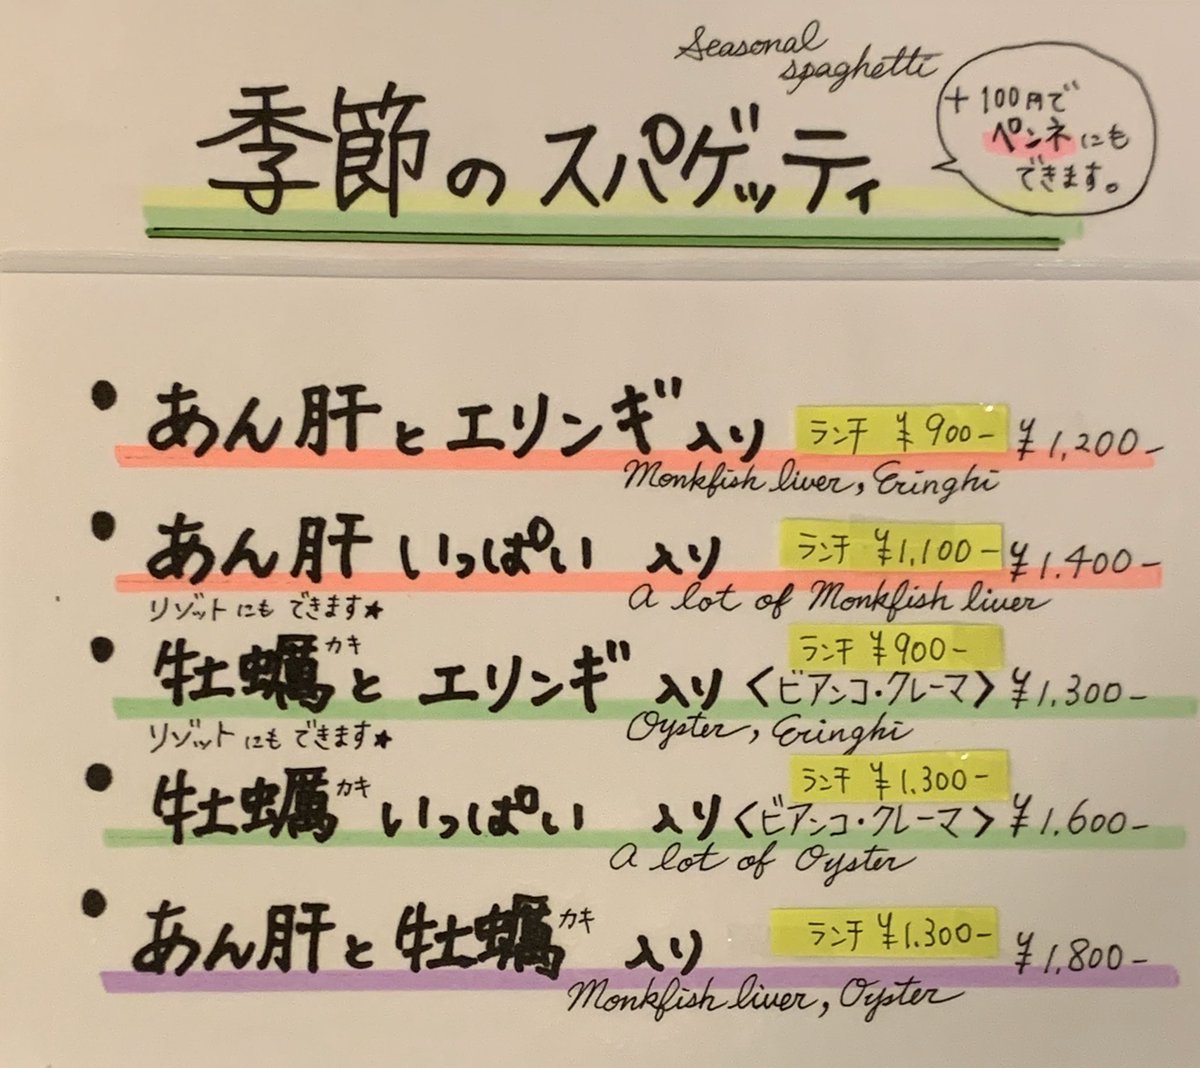 Seasonal
spaghetti
季節のスパゲッティ
+100円で
ペンネにも
できます。
• あん肝とエリンギ入り ランチ ¥900- ¥1,200-
Monkfish liver, Eringhi
• あん肝いっぱい 入り ランチ ¥1,100- ¥1.400-
リゾットにもできます★ A lot of Monkfish liver
ランチ ¥900-
• 牡蠣カキとエリンギ 入り〈ビアンコ・クレーマ〉¥1,300-
リゾットにもできます★ Oyster, Eringhi
ランチ ¥1.300-
• 牡蠣カキいっぱい 入り〈ビアンコ・クレーマ〉¥1.600-
A lot of Oyster
• あん肝と牡蠣カキ 入り ランチ ¥1.300- ¥1,800-
Monkfish liver, Oyster